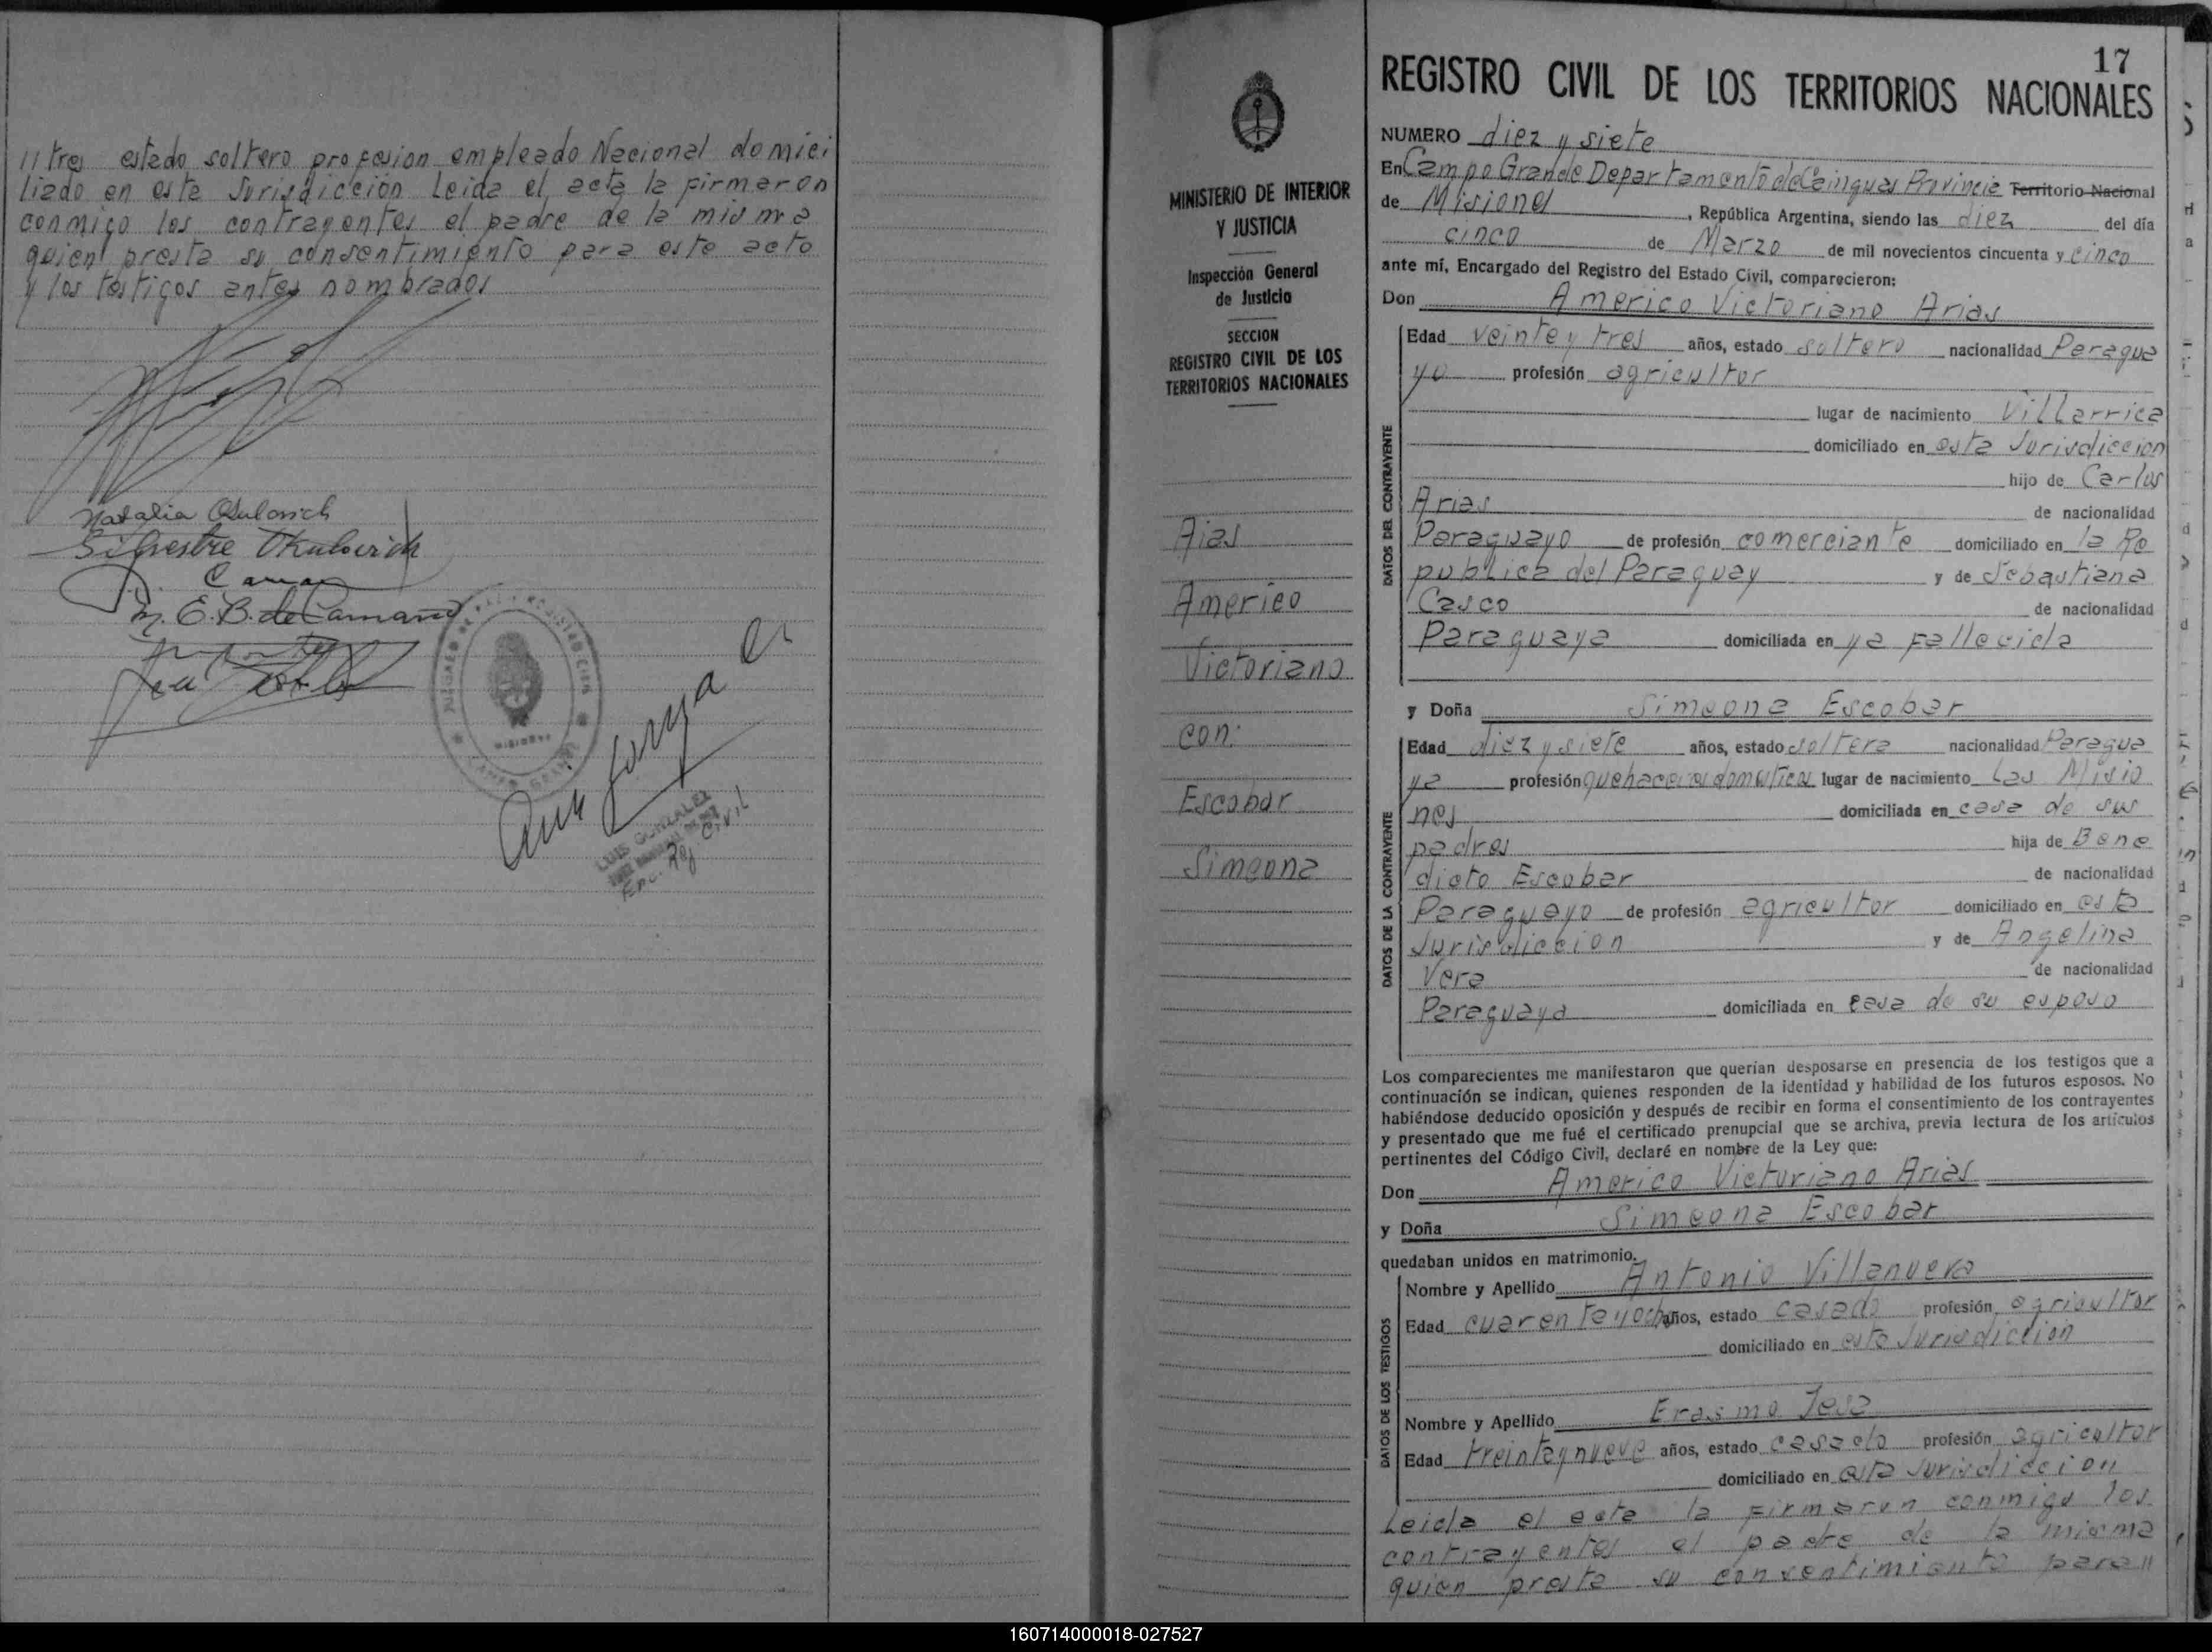 // tres estado soltero profesion empleado Nacional domici
liado en esta Jurisdicción Leida el acta la firmaron
conmigo los contrayentes el padre de la misma
quien presta su consentimiento para este acto
y los testigos antes nombrados
Natalia Okulovich
Silvestre Okulovich
M. E. B. de Camaño
LUIS GONZALEZ
Enc. Reg Civil
MINISTERIO DE INTERIOR
Y JUSTICIA
Inspección General
de Justicia
SECCION
REGISTRO CIVIL DE LOS
TERRITORIOS NACIONALES
Aias
Americo
Victoriano
con:
Escobar
Simeona
17
REGISTRO CIVIL DE LOS TERRITORIOS NACIONALES
NUMERO diez y siete
En Campo Grande Departamento de Cainguas Provincia Territorio Nacional
de Misiones, República Argentina, siendo las diez del día
cinco de Marzo de mil novecientos cincuenta y cinco
ante mí, Encargado del Registro del Estado Civil, comparecieron:
Don Americo Victoriano Arias
DATOS DEL CONTRAYENTE
Edad veinte y tres años, estado soltero nacionalidad Paragua
yo profesión agricultor
lugar de nacimiento Villarrica
domiciliado en esta Jurisdiccion
hijo de Carlos
Arias de nacionalidad
Paraguayo de profesión comerciante domiciliado en la Re
publica del Paraguay y de Sebastiana
Casco de nacionalidad
Paraguaya domiciliada en ya fallecida
y Doña Simeona Escobar
DATOS DE LA CONTRAYENTE
Edad diez y siete años, estado soltera nacionalidad Paragua
ya profesión quehaceres domesticos lugar de nacimiento Las Misio
nes domiciliada en casa de sus
padres hija de Bene
dicto Escobar de nacionalidad
Paraguayo de profesión agricultor domiciliado en esta
Jurisdiccion y de Angelina
Vera de nacionalidad
Paraguaya domiciliada en casa de su esposo
Los comparecientes me manifestaron que querían desposarse en presencia de los testigos que a
continuación se indican, quienes responden de la identidad y habilidad de los futuros esposos. No
habiéndose deducido oposición y después de recibir en forma el consentimiento de los contrayentes
y presentado que me fué el certificado prenupcial que se archiva, previa lectura de los artículos
pertinentes del Código Civil, declaré en nombre de la Ley que:
Don Americo Victoriano Arias
y Doña Simeona Escobar
quedaban unidos en matrimonio.
DATOS DE LOS TESTIGOS
Nombre y Apellido Antonio Villanueva
Edad cuarenta y ocho años, estado casado profesión agricultor
domiciliado en esta Jurisdiccion
Nombre y Apellido Erasmo
Edad treinta y nueve años, estado casado profesión agricultor
domiciliado en esta Jurisdiccion
Leida el acta la firmaron conmigo los
contrayentes el padre de la misma
quien presta su consentimiento para //
160714000018-027527